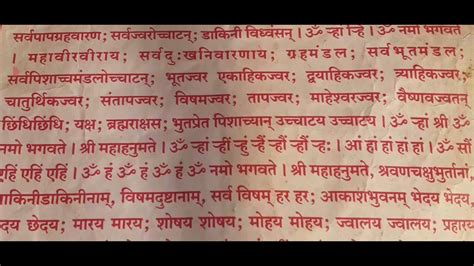 सर्वपापग्रहवारण; सर्वज्वरोच्चाटन्; डाकिनी विध्वंसन् । ॐ ऱ्हां ऱ्हि । ॐ नमो भगवते
। महावीरवीराय; सर्वदुःखनिवारणाय; ग्रहमंडल; सर्वभूतमंडल;
सर्वपिशाच्चमंडलोच्चाटन्; भूतज्वर एकाहिकज्वर; द्वयाहिकज्वर; त्र्याहिकज्वर;
चातुर्थिकज्वर; संतापज्वर; विषमज्वर; तापज्वर; माहेश्वरज्वर; वैष्णवज्वरान्
छिंधिछिंधि; यक्ष; ब्रह्मराक्षस; भुतप्रेत पिशाच्यान् उच्चाटय उच्चाटय । ॐ ऱ्हां श्री ॐ
नमो भगवते । श्री महाहनुमते; ॐ ऱ्हां ऱ्हीं ऱ्हुं ऱ्हैं ऱ्हौं ऱ्हः । आं हां हां हां हां । ॐ सौं
एहिं एहिं एहिं । ॐ हं ॐ हं ॐ हं ॐ नमो भगवते । श्री महाहनुमते, श्रवणचक्षुभुर्ताना,
ाकिनीडाकिनीनाम्, विषमदुष्टानाम्, सर्व विषम् हर हर; आकाशभुवनम् भेदय भेदय,
दय छेदय; मारय मारय; शोषय शोषय; मोहय मोहय; ज्वालय ज्वालय; प्रहार